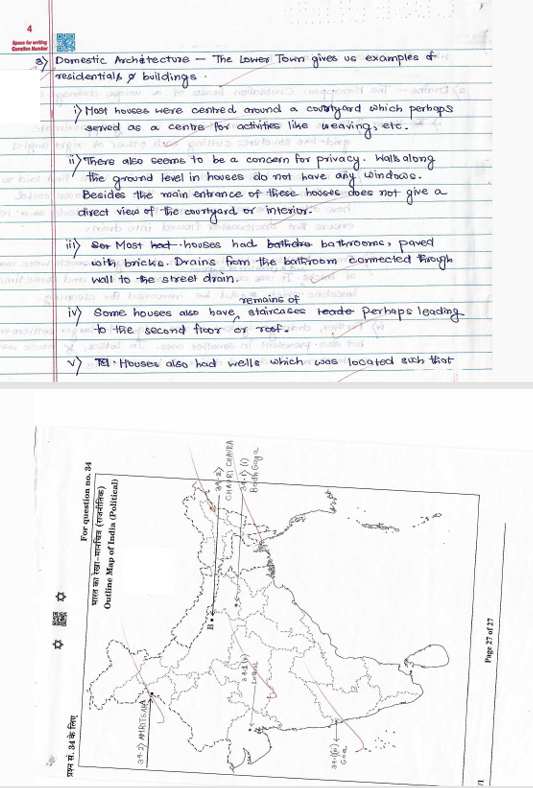 4
Space for writing
Question Number
3) Domestic Architecture – The Lower Town gives us examples of
residential buildings.
i) Most houses were centred around a courtyard which perhaps
served as a centre for activities like weaving, etc.
ii) There also seems to be a concern for privacy. Walls along
the ground level in houses do not have any windows.
Besides the main entrance of these houses does not give a
direct view of the courtyard or interior.
iii) Most houses had bathrooms, paved
with bricks. Drains from the bathroom connected through
wall to the street drain.
remains of
iv) Some houses also have staircases perhaps leading
to the second floor or roof.
v) Houses also had wells which was located such that
प्रश्न सं. 34 के लिए
For question no. 34
भारत का रेखा-मानचित्र (राजनीतिक)
Outline Map of India (Political)
34-2) AMRITSAR
B
34-2)
CHAURI CHAURA
34-1) (i)
Bodh Gaya
34-1
Goa
Page 27 of 27